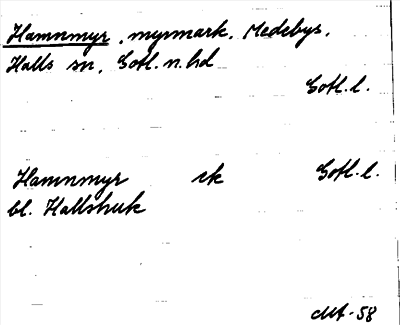 Hamnmyr, myrmark, Medebys,
Halls sn, Gotl. n. hd
Gotl. l.
Hamnmyr ek Gotl. l.
bl. Hallshuk
MA-58